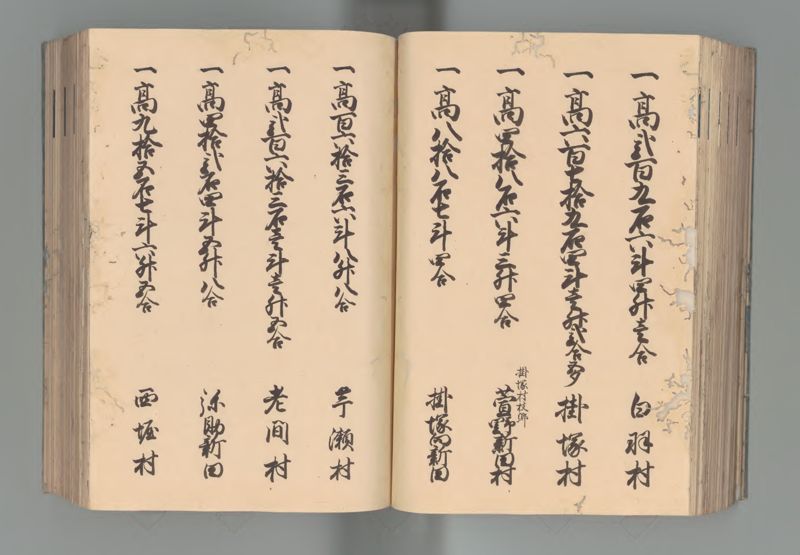 一高弐百九石六斗四升壱合 白羽村
一高六百七拾九石四斗壱升弐合五夕 掛塚村
一高四拾八石六斗三升四合 掛塚村枝郷 萱野新田村
一高八拾八石七斗四合 掛塚新田
一高百六拾三石六斗八升八合 芋瀬村
一高弐百六拾三石壱斗壱升五合 老間村
一高四拾弐石四斗五升八合 弥助新田
一高九拾五石七斗六升五合 西堀村